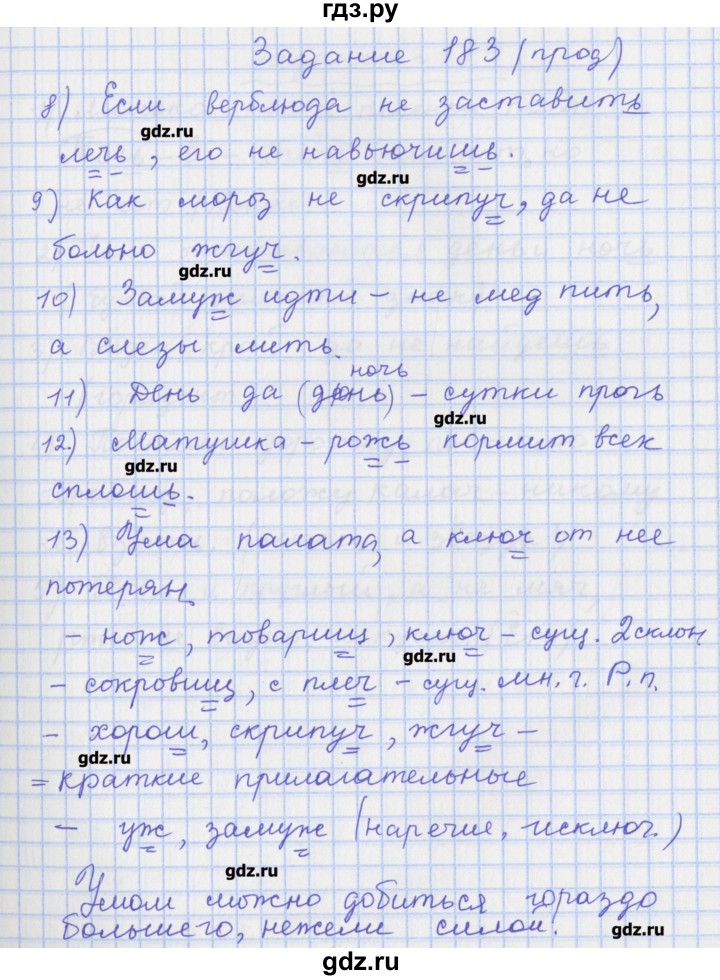 гдз.ру
Задание 183 (прод)
8) Если верблюда не заставить
gdz.ru
лечь, его не навьючишь.
gdz.ru
9) Как мороз не скрипуч, да не
больно жгуч.
gdz.ru
10) Замуж идти – не мед пить,
а слезы лить.
ночь
11) День да (день) – сутки прочь
gdz.ru
12) Матушка – рожь кормит всех
gdz.ru
сплошь.
13) Ума палата, а ключ от нее
потерян.
– нож, товарищ, ключ – сущ. 2 склон.
gdz.ru
– сокровищ, с плеч – сущ. мн.ч. Р.п.
– хорош, скрипуч, жгуч –
gdz.ru
= краткие прилагательные
– уж, замуж (наречие, исключ.)
gdz.ru
Умом можно добиться гораздо
большего, нежели силой.
gdz.ru